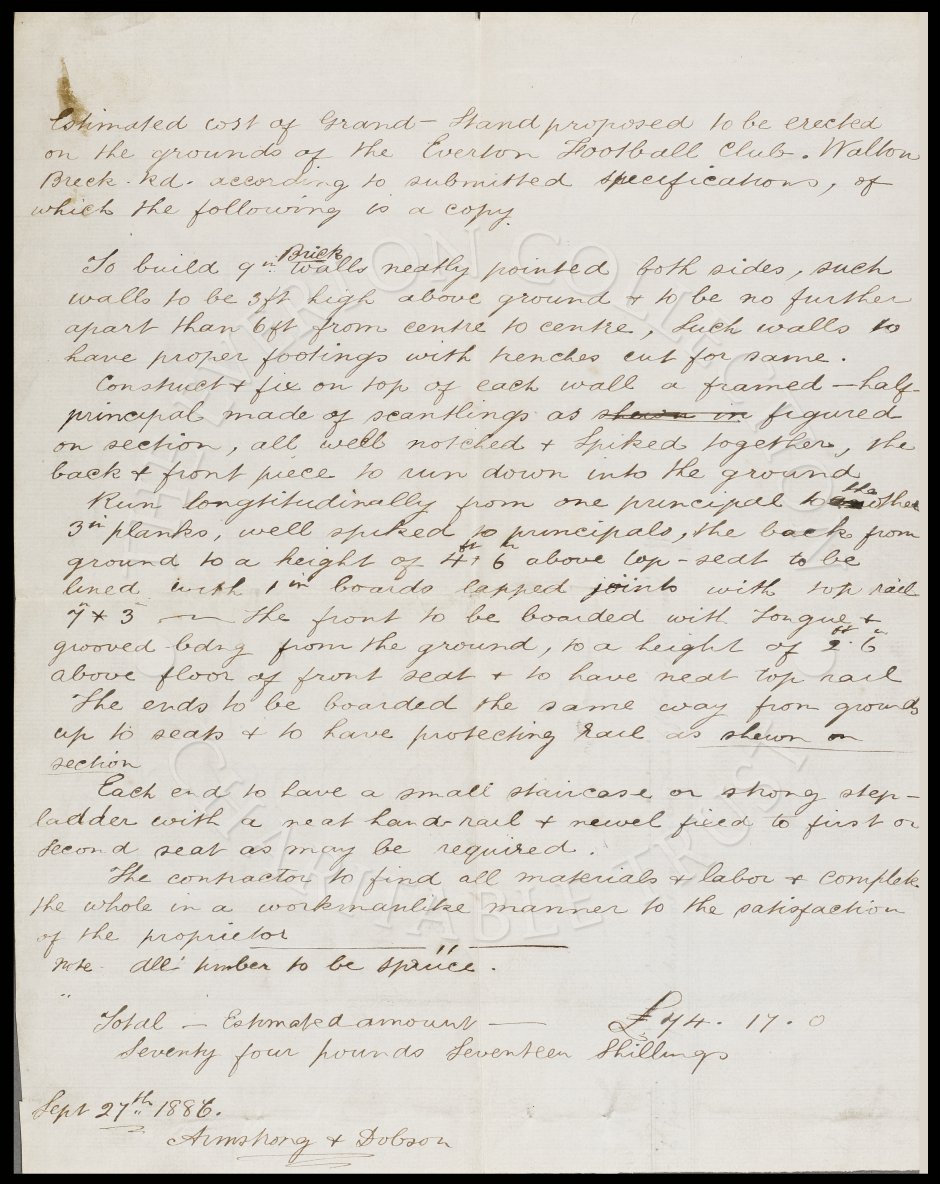 Estimated cost of Grand - Stand proposed to be erected
on the grounds of the Everton Football Club. Walton
Breck Rd. according to submitted specifications, of
which the following is a copy.
To build 9 in Brick walls neatly pointed both sides, such
walls to be 3ft high above ground & to be no further
apart than 6ft from centre to centre, Such walls to
have proper footings with trenches cut for same.
Construct & fix on top of each wall a framed - half-
principal made of scantlings as shewn in figured
on section, all well notched & Spiked together, the
back & front piece to run down into the ground
Run longtitudinally from one principal to the other
3 in planks, well spiked to principals, the back from
ground to a height of 4 ft 6 in above top - seat to be
lined with 1 in boards lapped joints with top rail
7 x 3 — The front to be boarded with Tongue &
grooved bdng from the ground, to a height of 2 ft 6 in
above floor of front seat & to have neat top rail
The ends to be boarded the same way from grounds
up to seats & to have protecting rail as shewn on
section
Each end to have a small staircase or strong step-
ladder with a neat hand-rail & newel fixed to first or
second seat as may be required.
The contractor to find all materials & labor & complete
the whole in a workmanlike manner to the satisfaction
of the proprietor
Note. All timber to be spruce.
Total - Estimated amount — £74. 17. 0
Seventy four pounds Seventeen Shillings
Sept 27th 1886.
Armstrong & Dobson
THE EVERTON COLLECTION
CHARITABLE TRUST